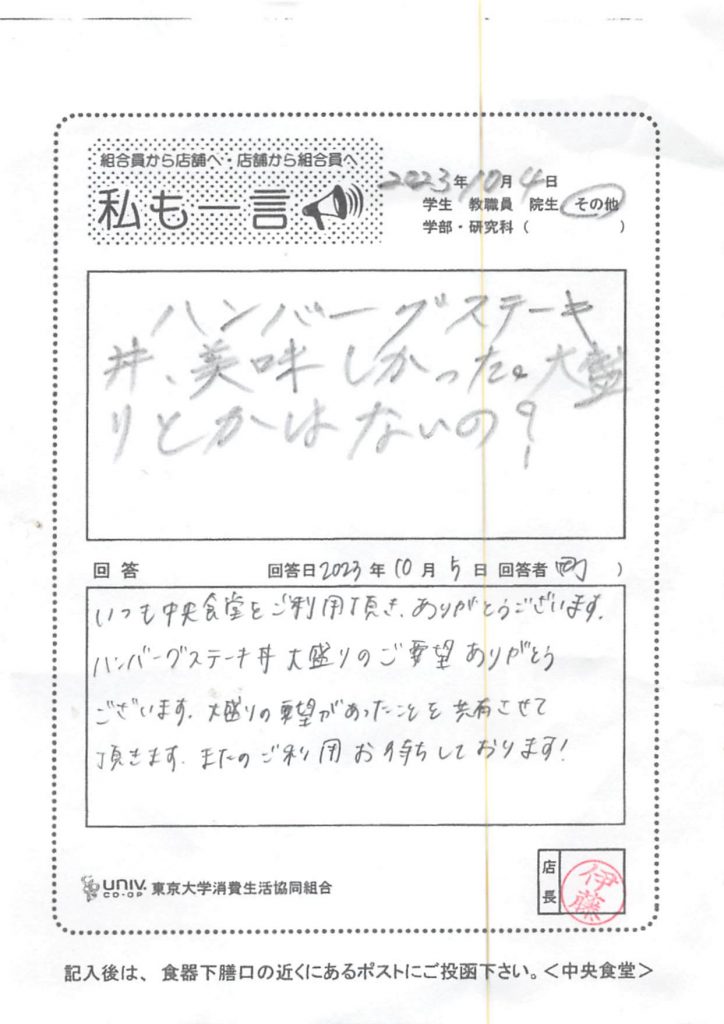 組合員から店舗へ・店舗から組合員へ
私も一言
2023年10月4日
学生 教職員 院生 その他
学部・研究科（ ）
ハンバーグステーキ
丼、美味しかった。大盛
りとかはないの？
回答 回答日2023年10月5日 回答者 ）
いつも中央食堂をご利用頂き、ありがとうございます。
ハンバーグステーキ丼 大盛りのご要望ありがとう
ございます。大盛りの要望があったことを共有させて
頂きます。またのご利用お待ちしております！
UNIV.
CO-OP
東京大学消費生活協同組合
店長
伊藤
記入後は、食器下膳口の近くにあるポストにご投函下さい。＜中央食堂＞